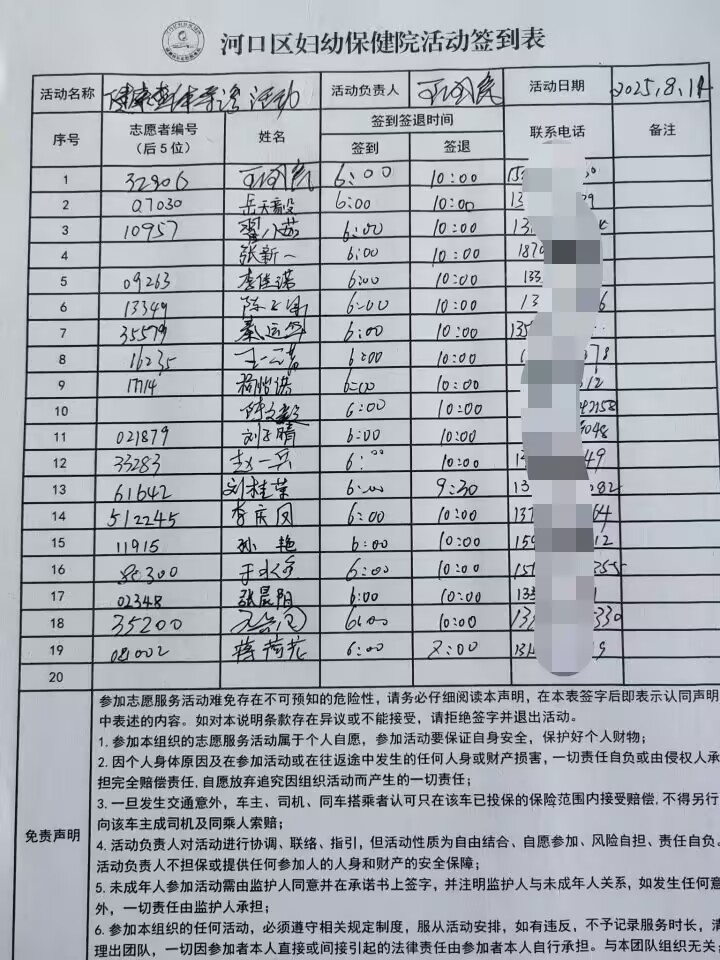 河口区妇幼保健院活动签到表
活动名称 健康 活动 活动负责人 活动日期 2025.8.14
序号 志愿者编号（后5位） 姓名 签到签退时间 联系电话 备注
签到 签退
1 32806 6:00 10:00
2 07030 岳天毅 6:00 10:00
3 10957 6:00 10:00
4 张新一 6:00 10:00
5 09263 李佳诺 6:00 10:00
6 13349 6:00 10:00
7 35579 秦运华 6:00 10:00
8 16235 王一诺 6:00 10:00
9 17114 6:00 10:00
10 陈文毅 6:00 10:00
11 021879 刘子晴 6:00 10:00
12 33283 赵一兵 6:00 10:00
13 61642 刘桂荣 6:00 9:30
14 512245 李庆凤 6:00 10:00
15 11915 孙艳 6:00 10:00
16 80300 6:00 10:00
17 02348 张晨阳 6:00 10:00
18 35200 6:00 10:00
19 08002 蒋荷花 6:00 8:00
20
免责声明
参加志愿服务活动难免存在不可预知的危险性，请务必仔细阅读本声明，在本表签字后即表示认同声明
中表述的内容。如对本说明条款存在异议或不能接受，请拒绝签字并退出活动。
1. 参加本组织的志愿服务活动属于个人自愿，参加活动要保证自身安全，保护好个人财物；
2. 因个人身体原因及在参加活动或在往返途中发生的任何人身或财产损害，一切责任自负或由侵权人承
担完全赔偿责任，自愿放弃追究因组织活动而产生的一切责任；
3. 一旦发生交通意外，车主、司机、同车搭乘者认可只在该车已投保的保险范围内接受赔偿，不得另行
向该车主成司机及同乘人索赔；
4. 活动负责人对活动进行协调、联络、指引，但活动性质为自由结合、自愿参加、风险自担、责任自负。
活动负责人不担保或提供任何参加人的人身和财产的安全保障；
5. 未成年人参加活动需由监护人同意并在承诺书上签字，并注明监护人与未成年人关系，如发生任何意
外，一切责任由监护人承担；
6. 参加本组织的任何活动，必须遵守相关规定制度，服从活动安排，如有违反，不予记录服务时长，清
理出团队，一切因参加者本人直接或间接引起的法律责任由参加者本人自行承担。与本团队组织无关；